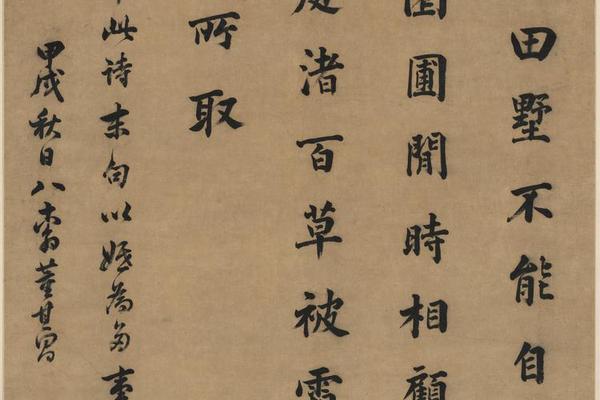 田墅不能自
圃閒時相顧
渚百草被
所取
此詩末句以婚為多事
甲戌秋日八十翁董其昌